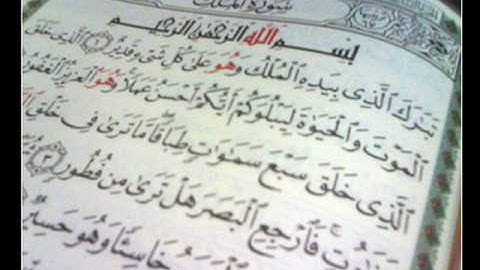 سورة الملك
بِسْمِ اللَّهِ الرَّحْمَٰنِ الرَّحِيمِ
تَبَٰرَكَ الَّذِي بِيَدِهِ الْمُلْكُ وَهُوَ عَلَىٰ كُلِّ شَيْءٍ قَدِيرٌ ١ الَّذِي خَلَقَ
الْمَوْتَ وَالْحَيَوٰةَ لِيَبْلُوَكُمْ أَيُّكُمْ أَحْسَنُ عَمَلًا وَهُوَ الْعَزِيزُ الْغَفُورُ
الَّذِي خَلَقَ سَبْعَ سَمَٰوَٰتٍ طِبَاقًا مَّا تَرَىٰ فِي خَلْقِ
فَارْجِعِ الْبَصَرَ هَلْ تَرَىٰ مِن فُطُورٍ ٣
خَاسِئًا وَهُوَ حَسِيرٌ